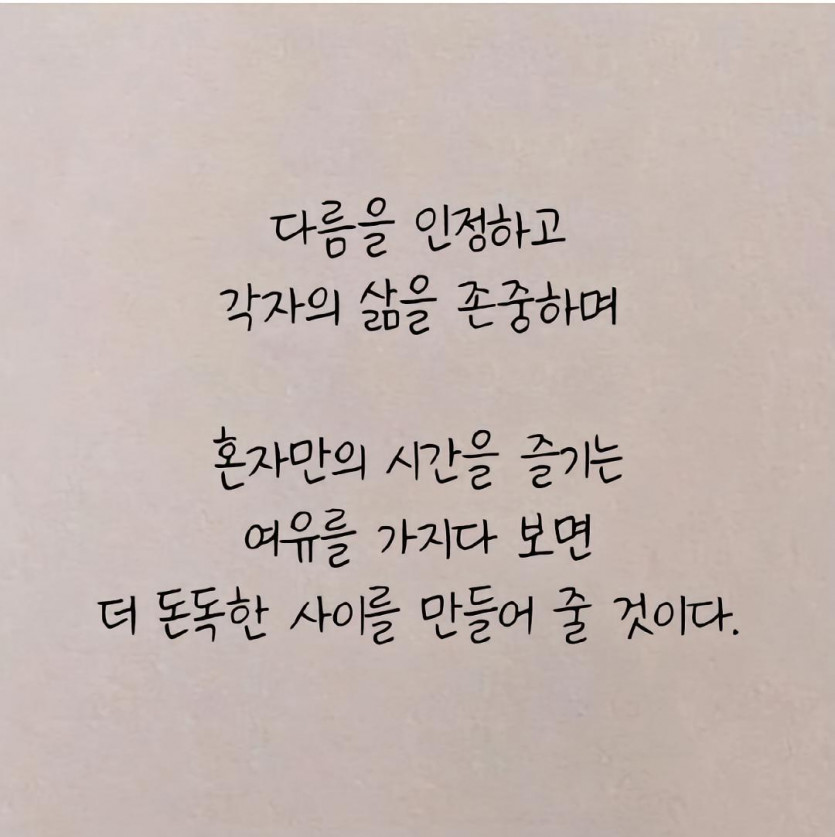 다름을 인정하고
각자의 삶을 존중하며
혼자만의 시간을 즐기는
여유를 가지다 보면
더 돈독한 사이를 만들어 줄 것이다.